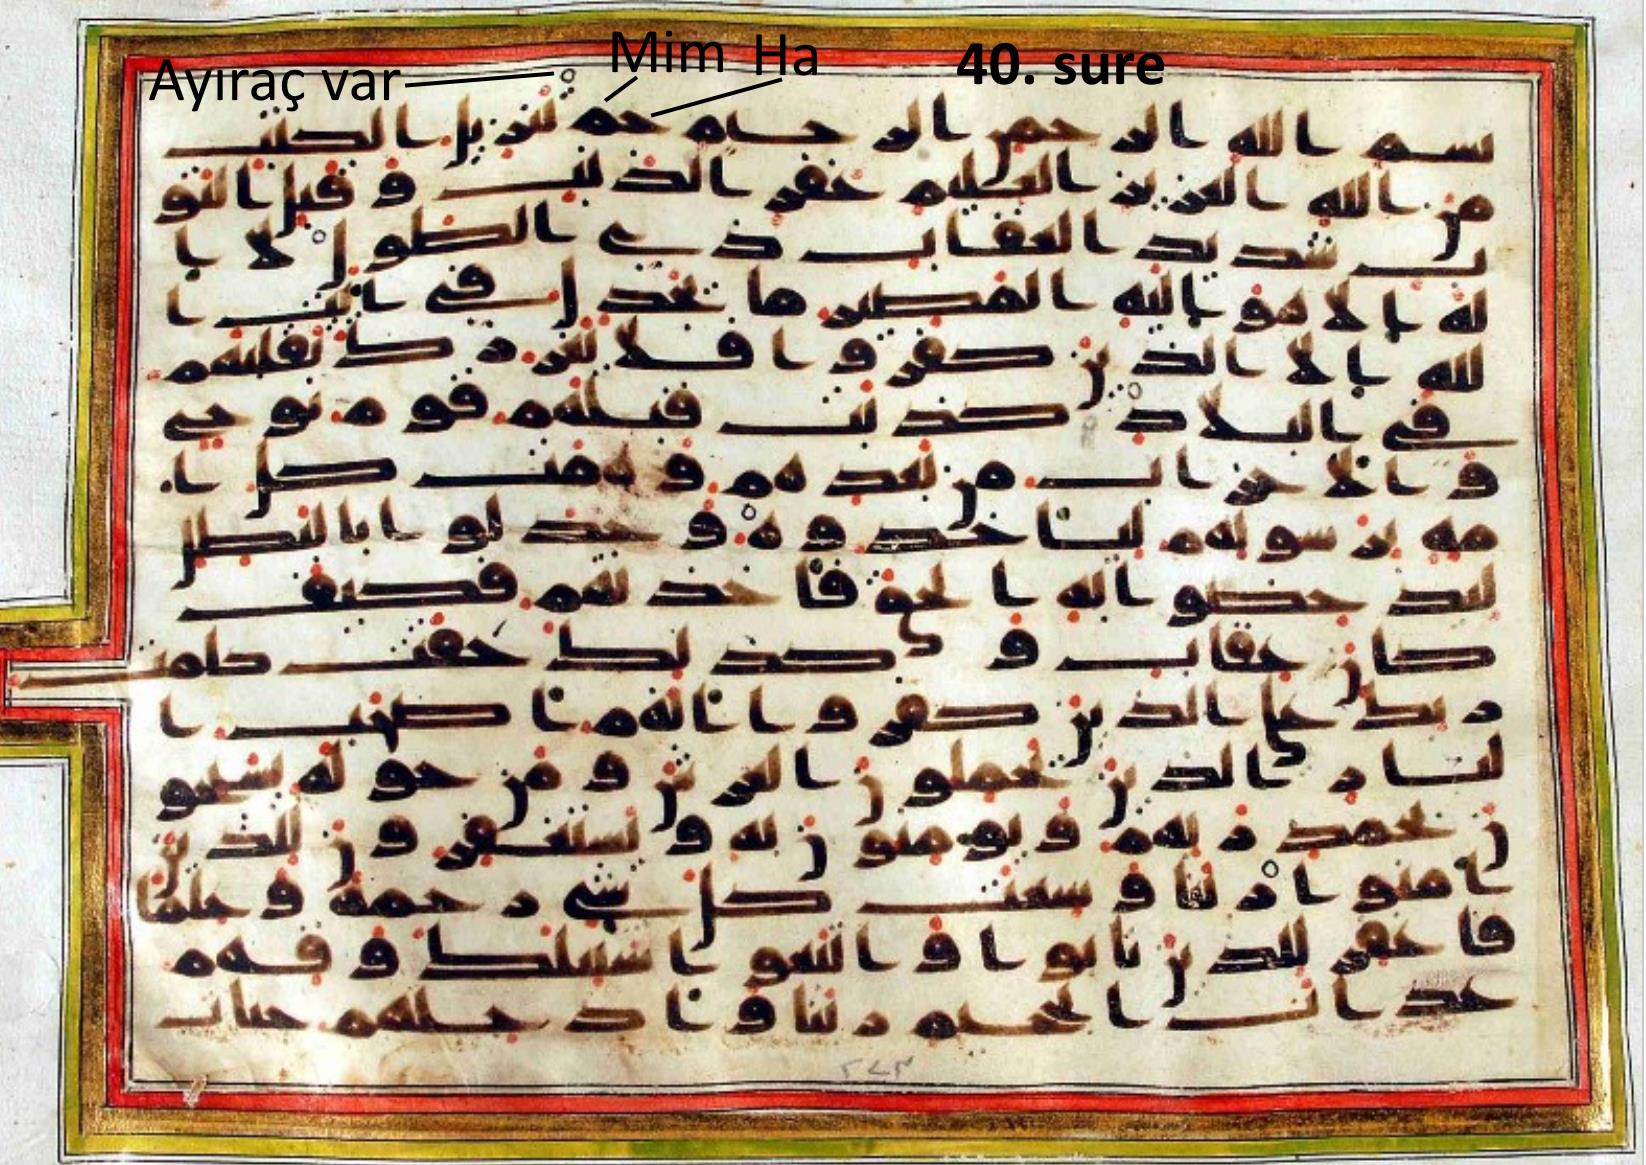 Ayıraç var Mim Ha 40. sure
بسم الله الرحمن الرحيم حم تنزيل الكتب
من الله العزيز العليم غفر الذنب وقبل التو
ب شديد العقاب ذي الطول لا ا
له الا هو اليه المصير ما يجدل في ايت ا
لله الا الذين كفروا فلا يغررك تقلبهم
في البلاد كذبت قبلهم قوم نوح
والاحزاب من بعدهم وهمت كل ا
مه برسولهم لياخذوه وجدلوا بالبطل
ليدحضوا به الحق فاخذتهم فكيف
كان عقاب وكذلك حقت كلمت
ربك على الذين كفروا انهم اصحب ا
لنار الذين يحملون العرش ومن حوله يسبحو
ن بحمد ربهم ويومنون به ويستغفرون للذين
امنوا ربنا وسعت كل شي رحمه وعلما
فاغفر للذين تابوا واتبعوا سبيلك وقهم
عذاب الجحيم ربنا وادخلهم جنات